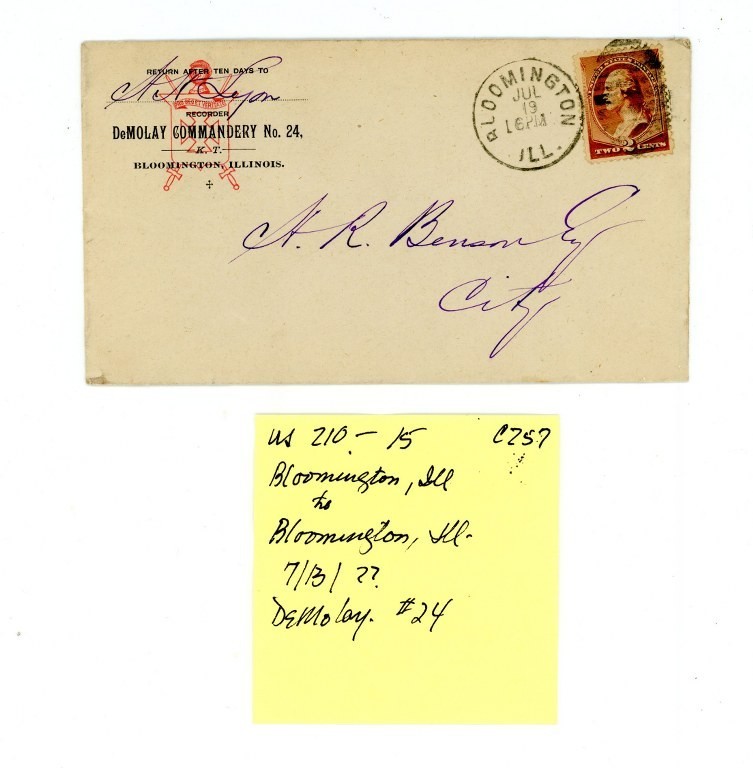 RETURN AFTER TEN DAYS TO
A. N. Lyon
RECORDER
DeMOLAY COMMANDERY No. 24,
K. T.
BLOOMINGTON, ILLINOIS.
BLOOMINGTON
JUL
19
6 PM
ILL.
TWO 2 CENTS
H. R. Benson Esq
City
US 210 - 15 C757
Bloomington, Ill
to
Bloomington, Ill.
7/13/ ??
DeMolay. #24